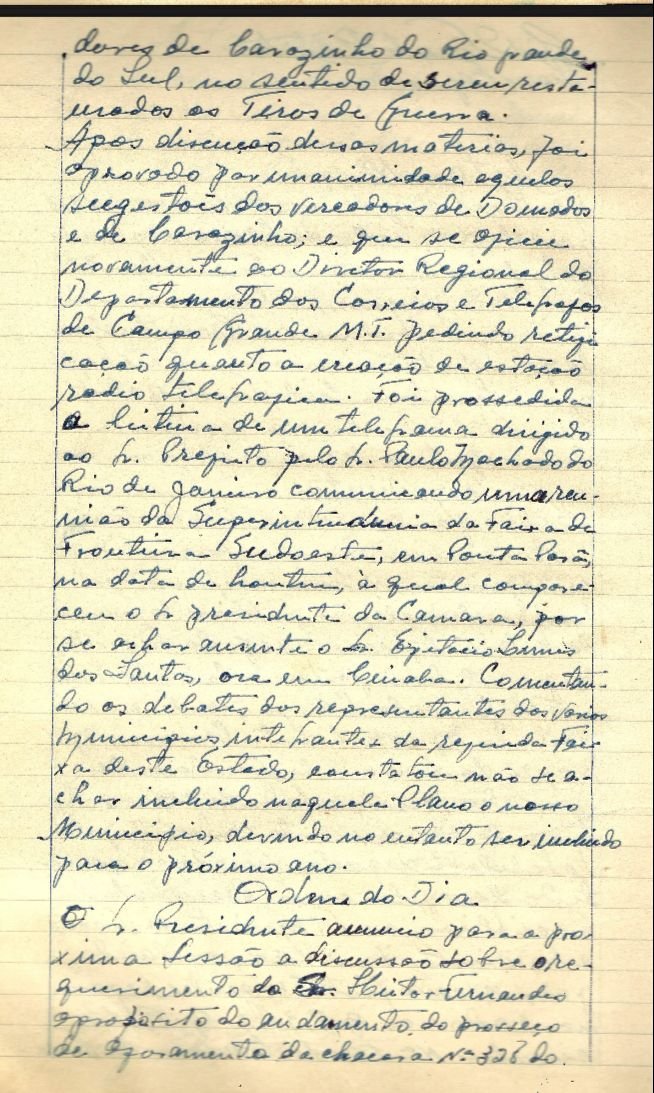 dores de Carazinho do Rio grande
do Sul, no sentido de serem resta-
urados os Tiros de Guerra.
Após discução dessas materias, foi
aprovado por unanimidade aquelas
sugestois dos vereadores de Dourados
e de Carazinho; e que se oficie
novamente ao Diretor Regional do
Departamento dos Correios e Telegrafos
de Campo Grande M.T. pedindo retifi
cação quanto a creação de estação
radio telegrafica. Foi prossedida
a leitura de um telegrama dirigido
ao Sr. Prefeito pelo Sr. Paulo Machado do
Rio de Janeiro comunicando uma reu-
nião da Superintendencia da Faixa de
Fronteira Sudoeste, em Ponta Porã,
na data de hontem, à qual compare-
ceu o Sr presidente da Camara, por
se achar ausente o Sr.
dos Santos, ora em Cuiaba. Comentan-
do os debates dos representantes dos varios
Municipios integrantes da referida Fai-
xa deste Estado, constatou não se a-
char incluido naquele Plano o nosso
Municipio, devendo no entanto ser incluido
para o próximo ano.
Ordem do Dia
O Sr. Presidente anuncio para a pro-
xima Sessão a discussão sobre o re-
querimento do Sr. Heitor Fernandes
aproposito do andamento do prosseço
de aforamento da chacara Nº 328 do